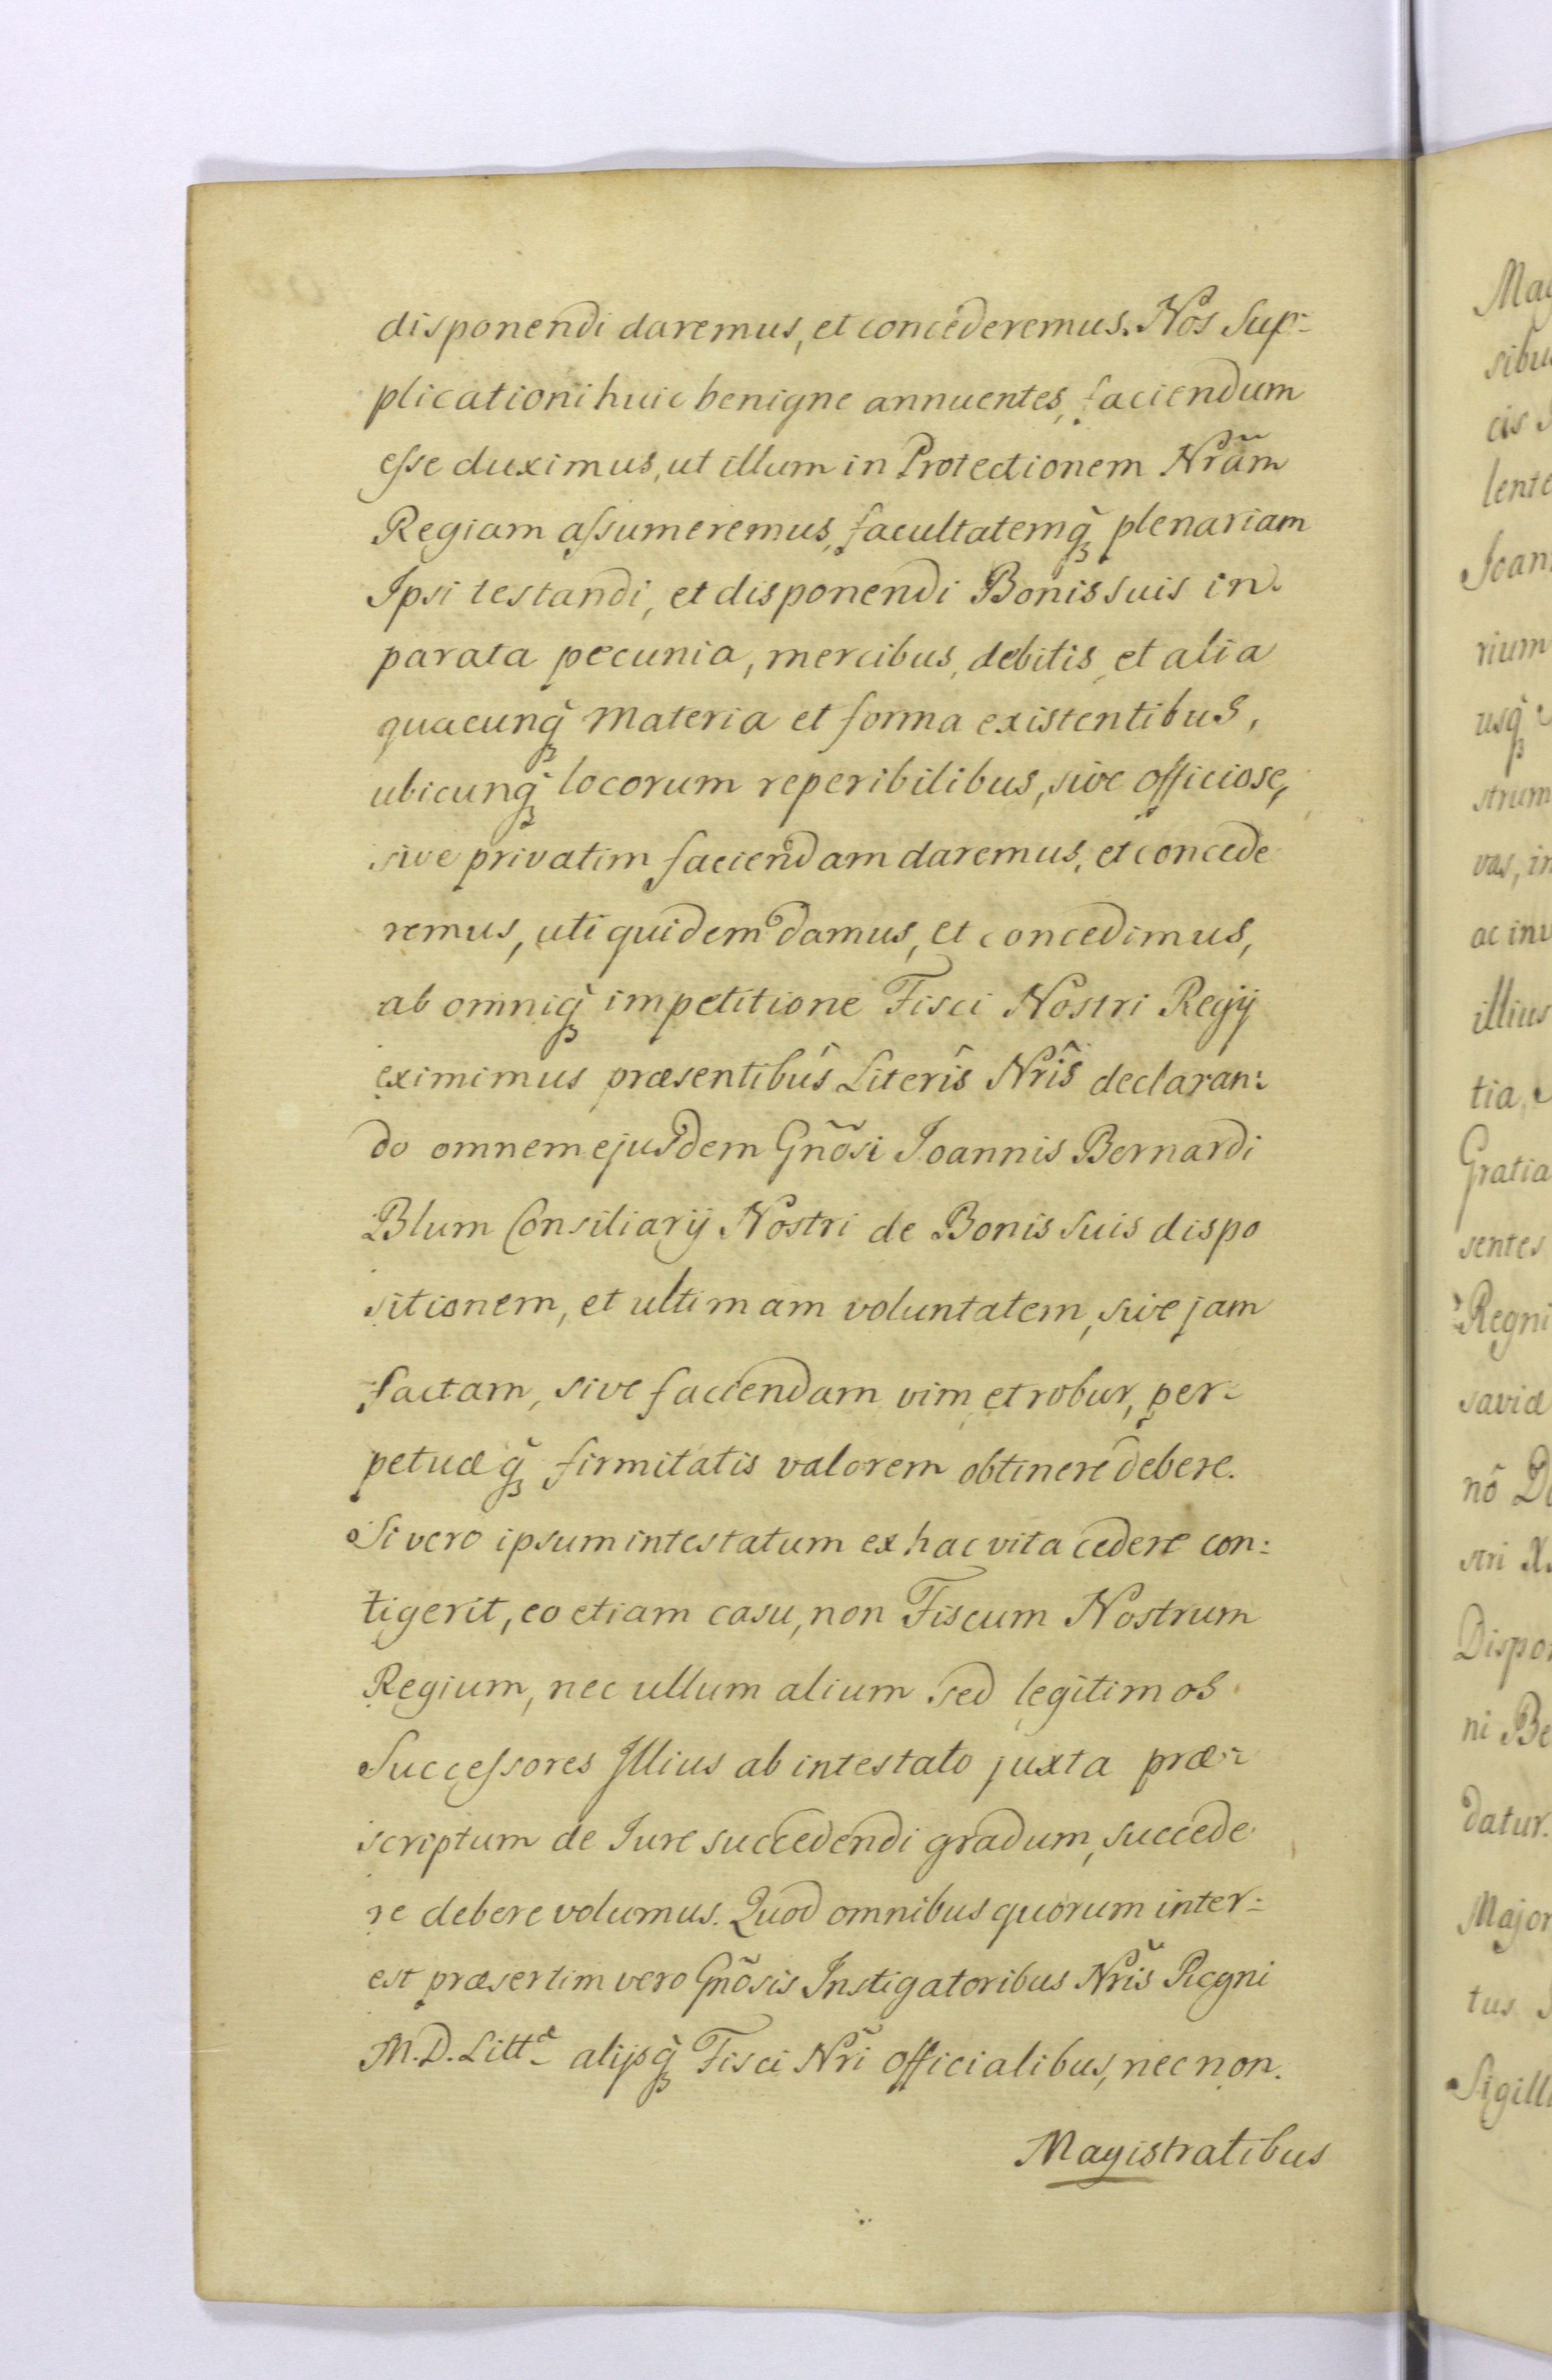 disponendi daremus, et concederemus. Nos Sup-
plicationi huic benigne annuentes, faciendum
eſse duximus, ut illum in Protectionem Nrãm
Regiam aſsumeremus, facultatemq̃ꝫ plenariam
Ipsi testandi, et disponendi Bonis suis in
parata pecunia, mercibus, debitis, et alia
quacunq̃ꝫ Materia et forma existentibus,
ubicunq̃ꝫ locorum reperibilibus, sive officiose,
sive privatim faciendam daremus, et concede
remus, uti quidem damus, et concedimus,
ab omniq̃ꝫ impetitione Fisci Nostri Regij
eximimus præsentibûs Literîs Nrîs declaran:
do omnem ejusdem Gnõsi Joannis Bernardi
Blum Consiliarij Nostri de Bonis suis dispo
sitionem, et ultimam voluntatem, sive jam
factam, sive faciendam vim et robur, per-
petuæq̃ꝫ firmitatis valorem obtinere debere.
Si vero ipsum intestatum ex hac vita cedere con:
tigerit, eo etiam casu, non Fiscum Nostrum
Regium, nec ullum alium sed legitimos
Succeſsores Illius ab intestato juxta præ-
scriptum de Jure succedendi gradum, succede
re debere volumus. Quod omnibus quorum inter-
est præsertim vero Gnõsis Instigatoribus Nrĩs Regni
M. D. Littᵉ alijsq̃ꝫ Fisci Nrĩ officialibus, nec non.
Magistratibus
sibu
lente
Joan
rium
usq̃ꝫ
strum
vas, in
ac inv
illius
tia
Gratia
sentes
Regni
saviæ
nô D
stri
Dispo
ni Be
datur.
Major
tus
Sigill